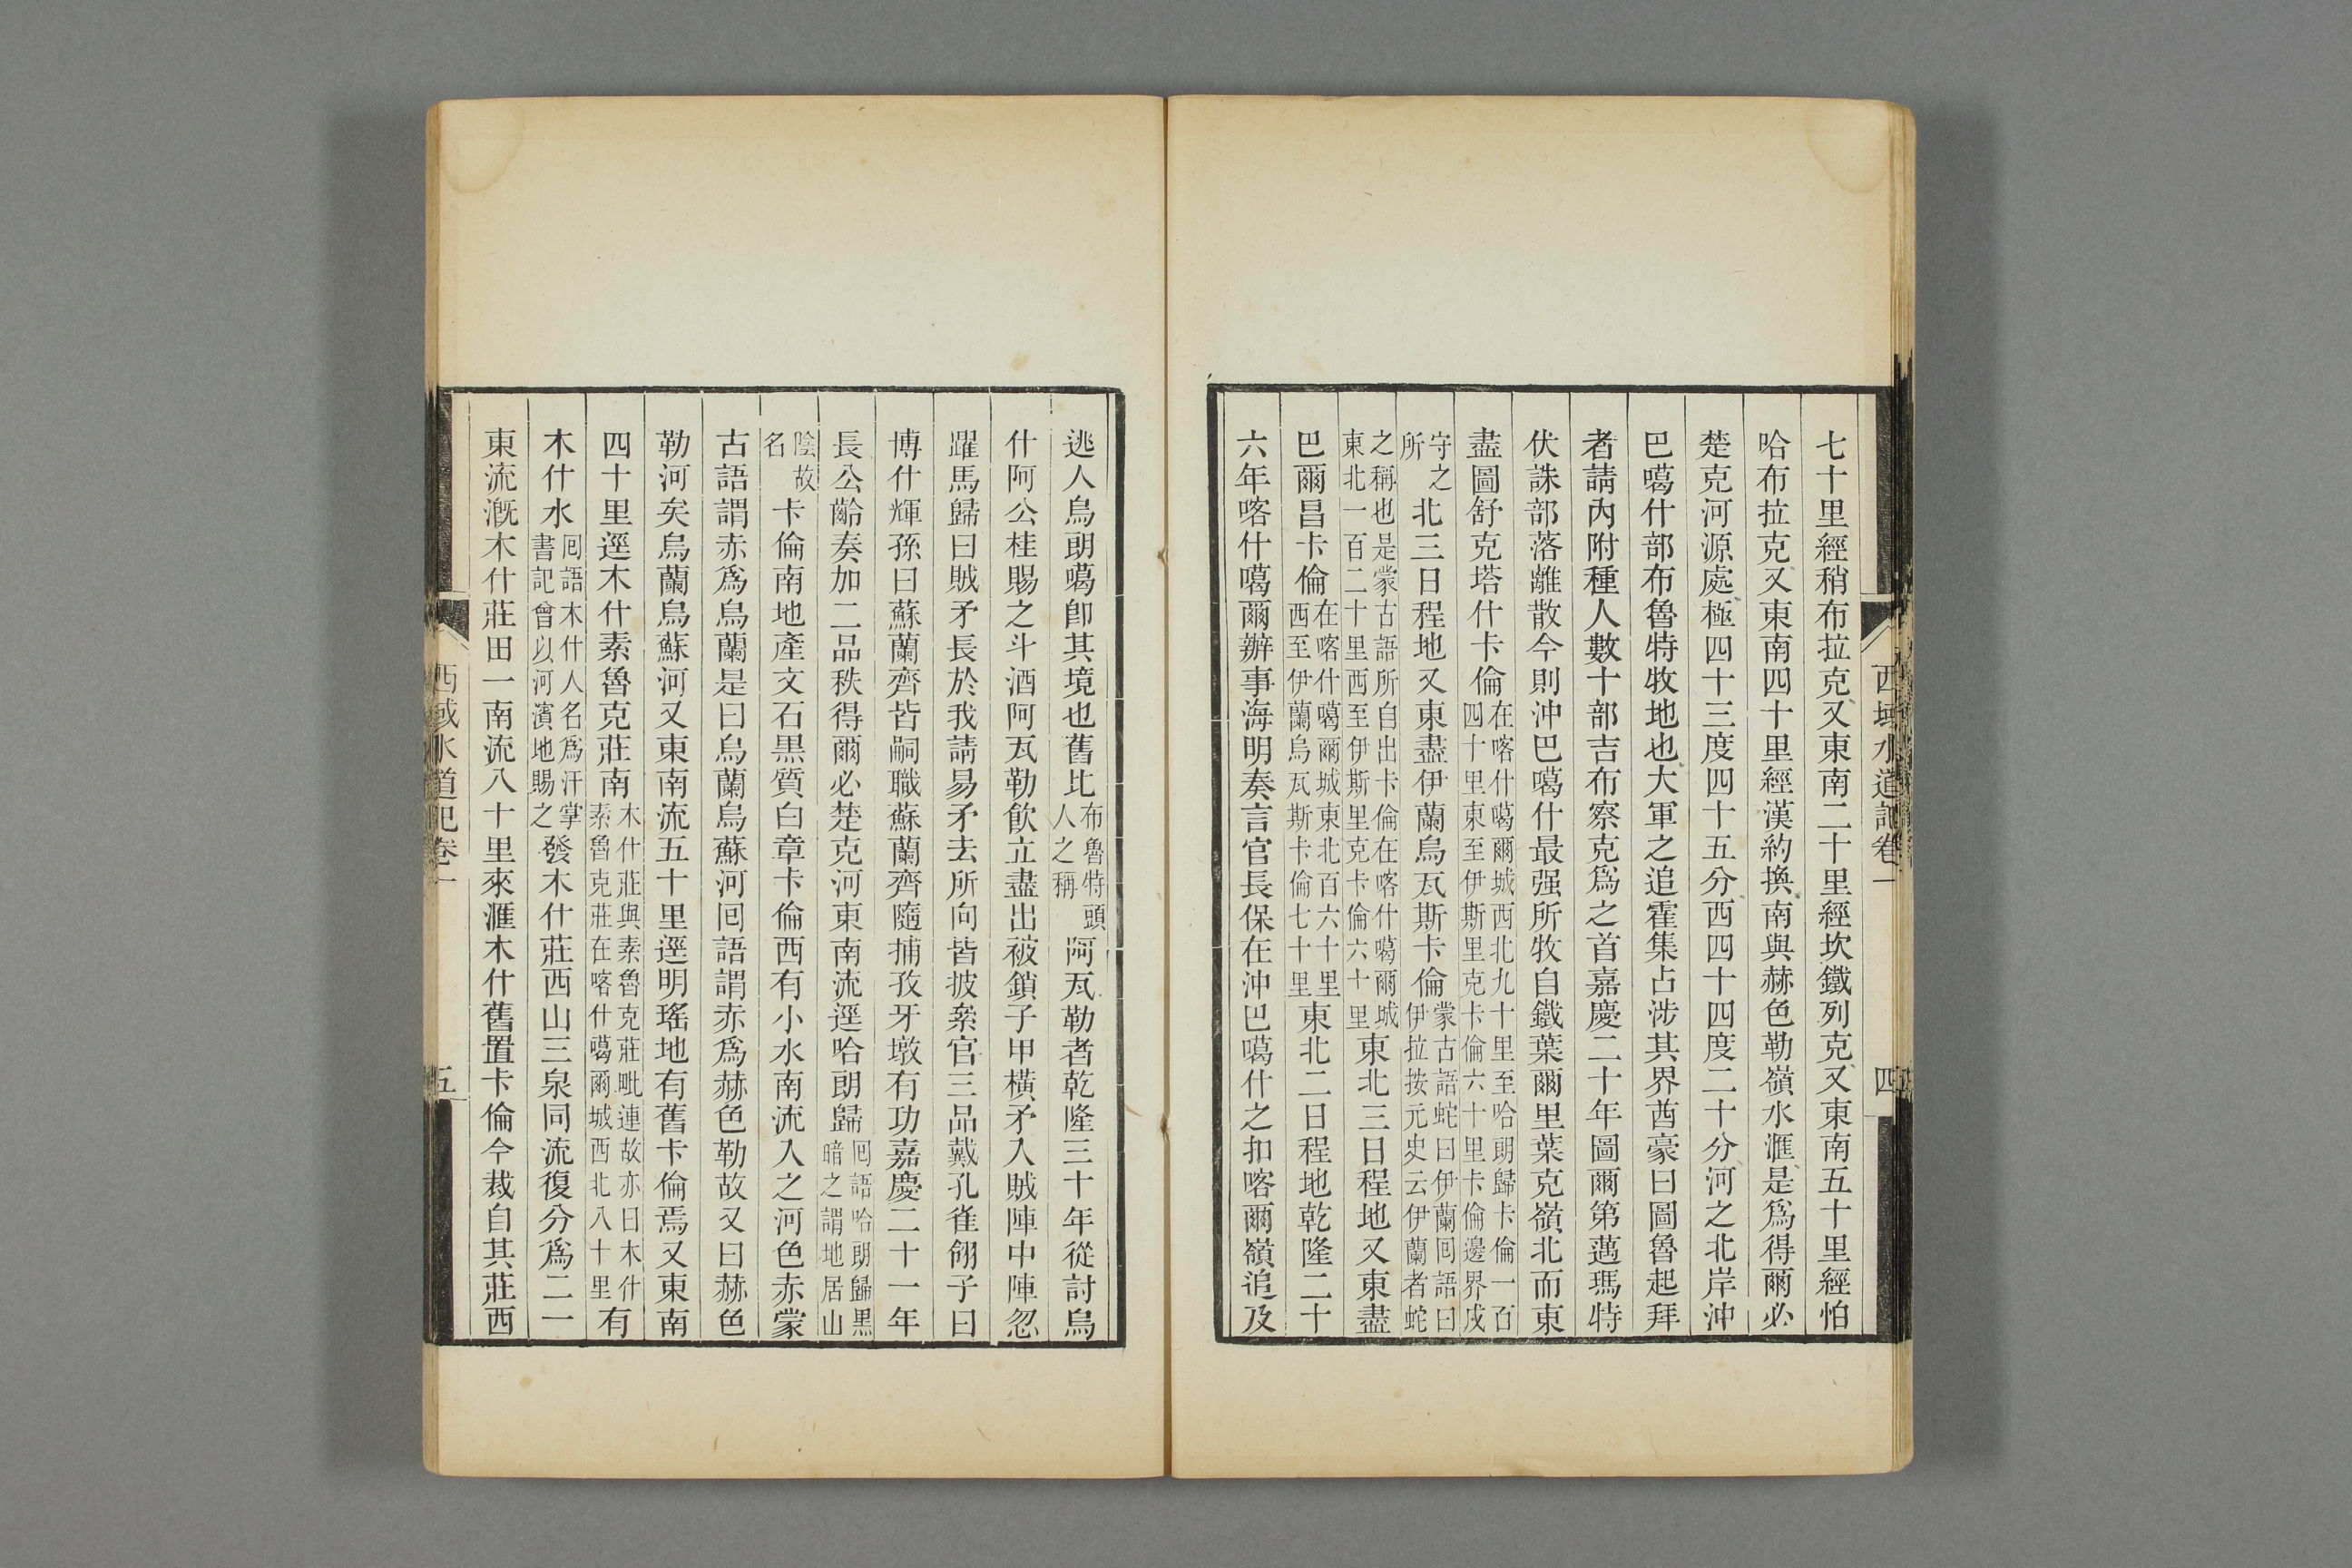 西域水道記卷一
四
七十里經稍布拉克又東南二十里經坎鐵列克又東南五十里經怕
哈布拉克又東南四十里經漢約換南與赫色勒嶺水滙是爲得爾必
楚克河源處極四十三度四十五分西四十四度二十分河之北岸沖
巴噶什部布魯特牧地也大軍之追霍集占涉其界酋豪曰圖魯起拜
者請內附種人數十部吉布察克爲之首嘉慶二十年圖爾第邁瑪特
伏誅部落離散今則沖巴噶什最强所牧自鐵葉爾里葉克嶺北而東
盡圖舒克塔什卡倫在喀什噶爾城西北九十里至哈朗歸卡倫一百四十里東至伊斯里克卡倫六十里卡倫邊界戍
守之所北三日程地又東盡伊蘭烏瓦斯卡倫蒙古語蛇曰伊蘭囘語曰伊拉按元史云伊蘭者蛇
之稱也是蒙古語所自出卡倫在喀什噶爾城東北一百二十里西至伊斯里克卡倫六十里東北三日程地又東盡
巴爾昌卡倫在喀什噶爾城東北百六十里西至伊蘭烏瓦斯卡倫七十里東北二日程地乾隆二十
六年喀什噶爾辦事海明奏言官長保在沖巴噶什之扣喀爾嶺追及
逃人烏朗噶卽其境也舊比布魯特頭人之稱阿瓦勒者乾隆三十年從討烏
什阿公桂賜之斗酒阿瓦勒飲立盡出被鎖子甲橫矛入賊陣中陣忽
躍馬歸曰賊矛長於我請易矛去所向皆披奈官三品戴孔雀翎子曰
博什輝孫曰蘇蘭齊皆嗣職蘇蘭齊隨捕孜牙墩有功嘉慶二十一年
長公齡奏加二品秩得爾必楚克河東南流逕哈朗歸囘語哈朗歸黑暗之謂地居山
陰故名卡倫南地產文石黑質白章卡倫西有小水南流入之河色赤蒙
古語謂赤爲烏蘭是曰烏蘭烏蘇河囘語謂赤爲赫色勒故又曰赫色
勒河矣烏蘭烏蘇河又東南流五十里逕明瑤地有舊卡倫焉又東南
四十里逕木什素魯克莊南木什莊與素魯克莊毗連故亦曰木什素魯克莊在喀什噶爾城西北八十里有
木什水囘語木什人名爲汗掌書記曾以河濱地賜之發木什莊西山三泉同流復分爲二一
東流漑木什莊田一南流八十里來滙木什舊置卡倫今裁自其莊西
西域水道記卷一
五